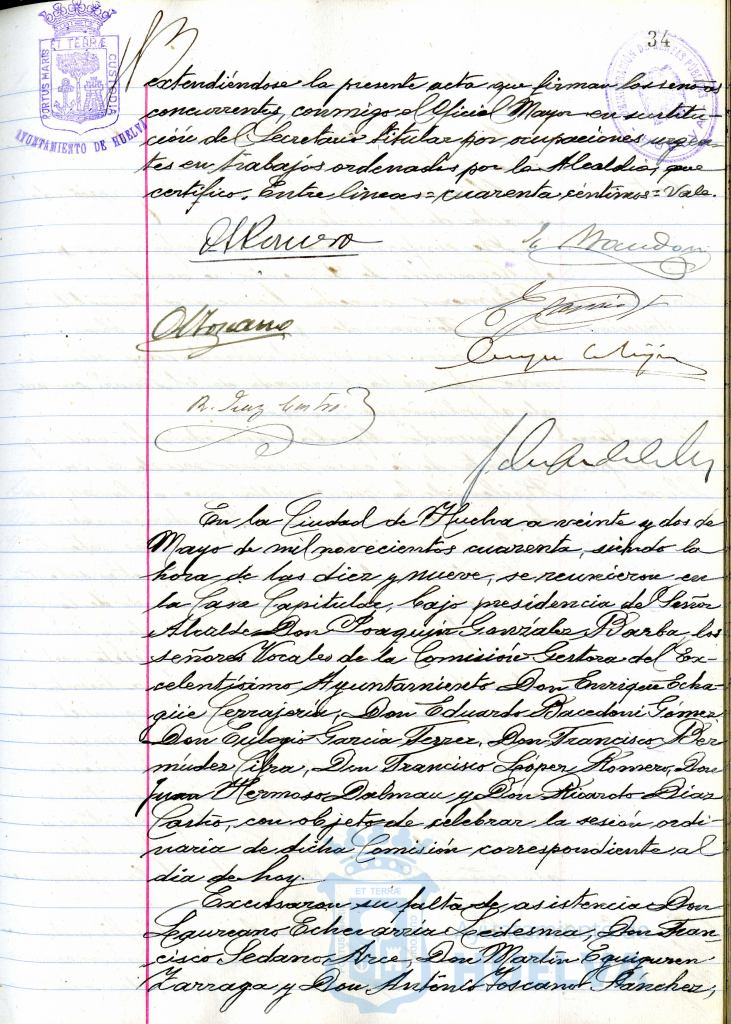 34
PORTUS MARIS ET TERRÆ CUSTODIA
AYUNTAMIENTO DE HUELVA
extendiéndose la presente acta que firman los señores
concurrentes, conmigo el Oficial Mayor en sustitu-
ción del Secretario titular por ocupaciones urgen-
tes en trabajos ordenados por la Alcaldía, que
certifico. Entre lineas = cuarenta céntimos = Vale.
R. Diaz Castro
En la Ciudad de Huelva a veinte y dos de
Mayo de mil novecientos cuarenta, siendo la
hora de las diez y nueve, se reunieron en
la Casa Capitular, bajo presidencia del Señor
Alcalde Don Joaquín González Barba, los
señores Vocales de la Comisión Gestora del Ex-
celentísimo Ayuntamiento Don Enrique Echa-
güe Cerrajería, Don Eduardo Bacedoni Gómez
Don Eulogio García Ferrer, Don Francisco Ber
múdez Cifra, Don Francisco López Romero, Don
Juan Hermoso Dalmau y Don Ricardo Díaz
Castro, con objeto de celebrar la sesión ordi-
naria de dicha Comisión correspondiente al
día de hoy.
Excusaron su falta de asistencia Don
Laureano Echevarría Ledesma, Don Fran-
cisco Sedano Arce, Don Martín Eguiguren
Zarraga y Don Antonio Toscano Sánchez,